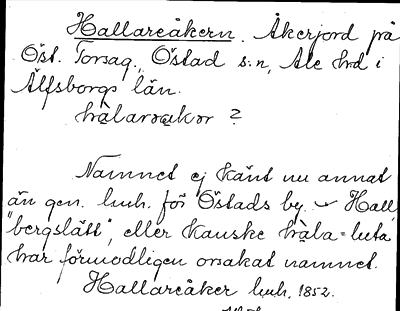 Hallareåkern. Åkerjord på
Öst. Torsag., Östad s:n, Ale hrd i
Älfsborgs län.
hą̊laroąkor ?
Namnet ej känt nu annat
än gen. luh. för Östads by. Hall,
"bergslätt", eller kanske hą̊la = luta
har förmodligen orsakat namnet.
Hallareåker luh. 1852.